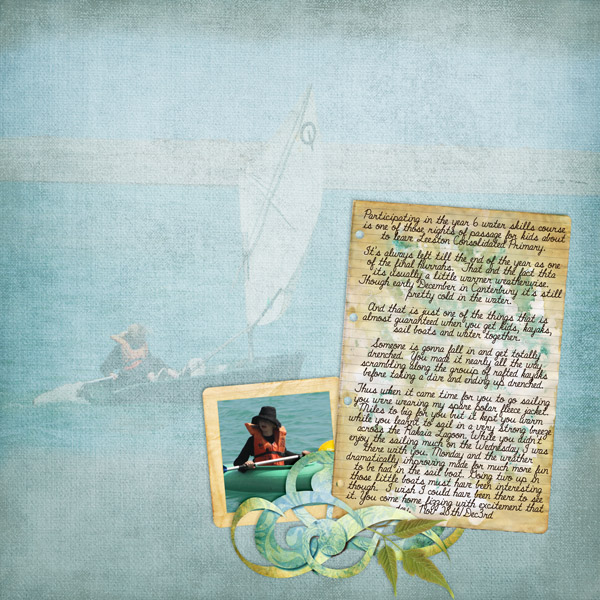 Participating in the year 6 water skills course
is one of those rights of passage for kids about
to leave Leeston Consolidated Primary.
It's always left till the end of the year as one
of the final hurrahs. That and the fact thta
it's usually a little warmer weatherwise.
Though early December in Canterbury it's still
pretty cold in the water.
And that is just one of the things that is
almost guaranteed when you get kids, kayaks,
sail boats and water together.
Someone is gonna fall in and get totally
drenched. You made it nearly all the way
scrambling along the grouip of rafted kayaks
before taking a dare and ending up drenched.
Thus when it came time for you to go sailing
you were wearing my spare polar fleece jacket.
Miles to big for you but it kept you warm
while you learnt to sail in a very strong breeze
across the Rakaia Lagoon. While you didn't
enjoy the sailing much on the Wednesday I was
there with you. Monday and the weather
dramatically improving made for much more fun
to be had in the sail boat. Doing two up in
those little boats must have been interesting
though. I wish I could have been there to see
it. You come home fizzing with excitement that
day. Nov 28th/Dec3rd